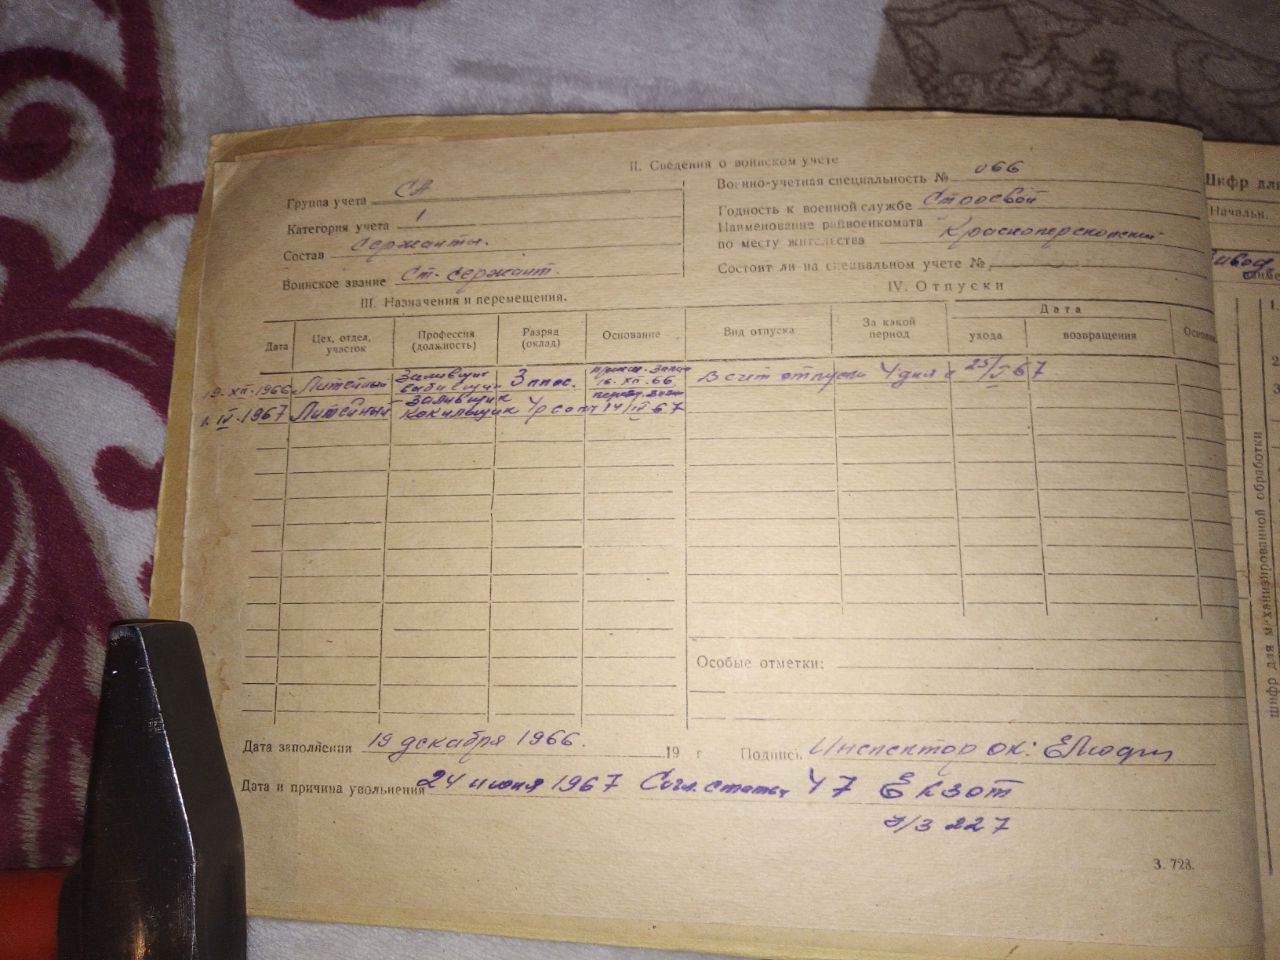 II. Сведения о воинском учете
Группа учета СА
Категория учета 1
Состав сержанты.
Воинское звание Ст. сержант.
Военно-учетная специальность № 066
Годность к военной службе Строевой
Наименование райвоенкомата
по месту жительства Красноперекопский
Состоит ли на специальном учете №
III. Назначения и перемещения.
Дата Цех, отдел, участок Профессия (должность) Разряд (оклад) Основание
19.XII.1966 Литейный Заливщик 3 16.XII.66
1.IV.1967 Литейный Заливщик кокильщик 14/IV 67
IV. Отпуски
Вид отпуска За какой период Дата ухода возвращения
В счет отпуска 4 дня с 25/ 67
Особые отметки:
Дата заполнения 19 декабря 1966. 19 г Подпись Инспектор ок:
Дата и причина увольнения 24 июня 1967 Согл. статьи 47 Е КЗОТ
227
З. 728.
Шифр для
Начальн.
шифр для механизированной обработки